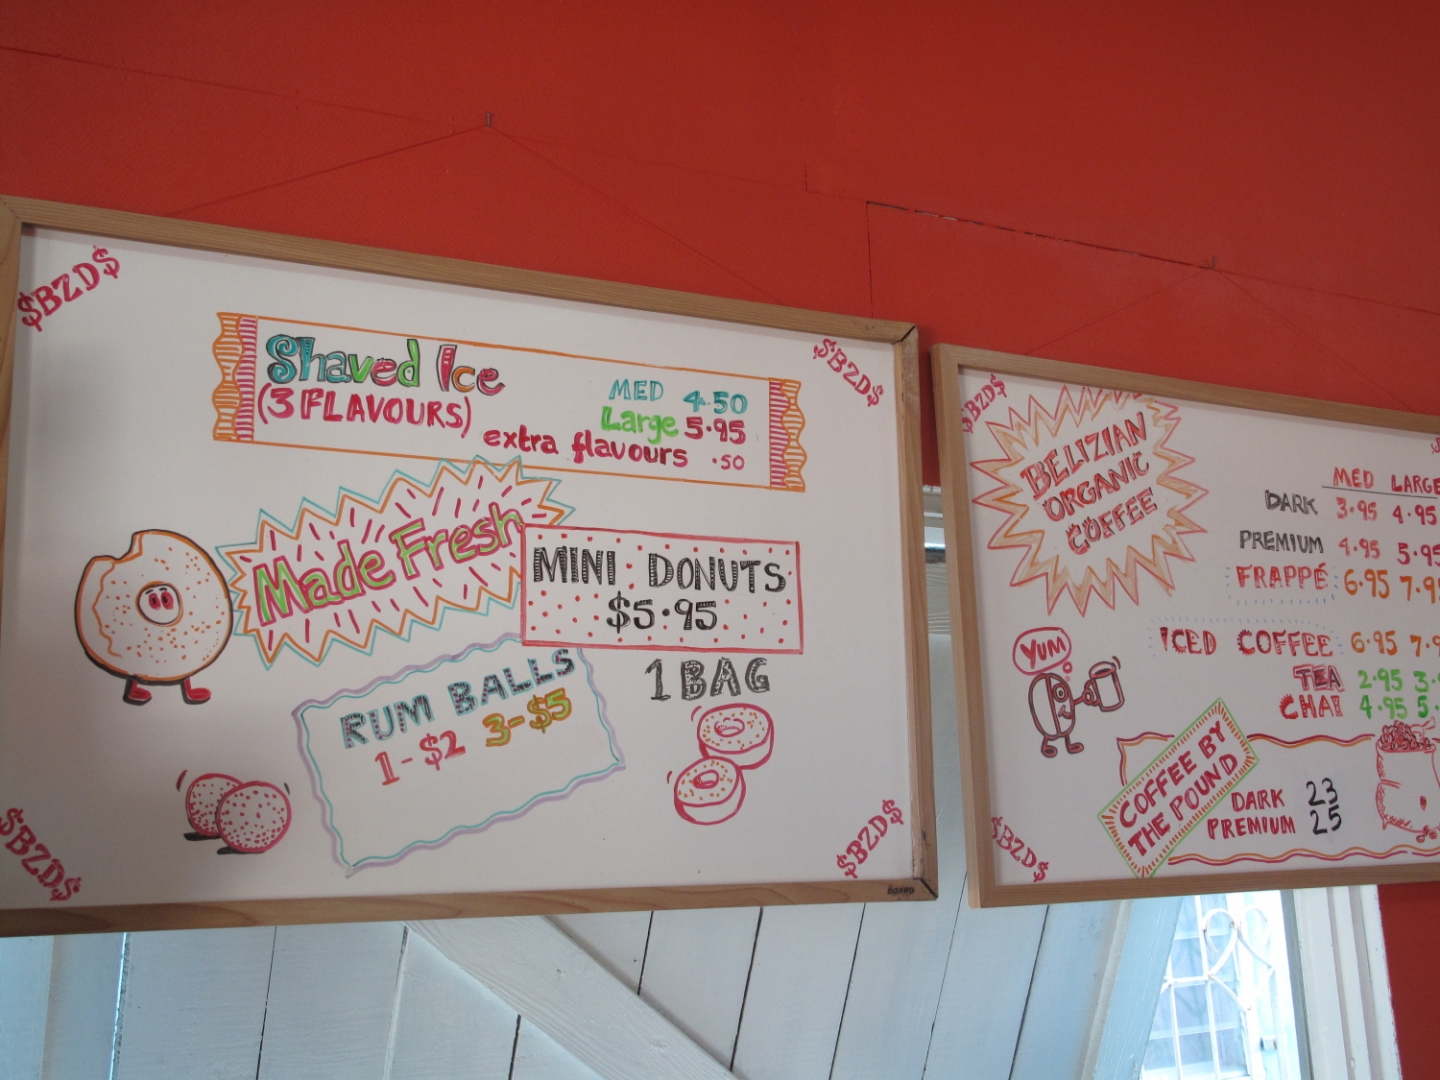 $BZD$
$BZD$
Shaved Ice
(3 FLAVOURS)
MED 4.50
Large 5.95
extra flavours .50
Made Fresh
MINI DONUTS
$5.95
1 BAG
RUM BALLS
1-$2 3-$5
$BZD$
$BZD$
$BZD$
BELIZIAN
ORGANIC
COFFEE
MED LARGE
DARK 3.95 4.95
PREMIUM 4.95 5.95
FRAPPÉ 6.95 7.95
ICED COFFEE 6.95
TEA 2.95
CHAI 4.95
YUM
COFFEE BY
THE POUND
DARK 23
PREMIUM 25
$BZD$